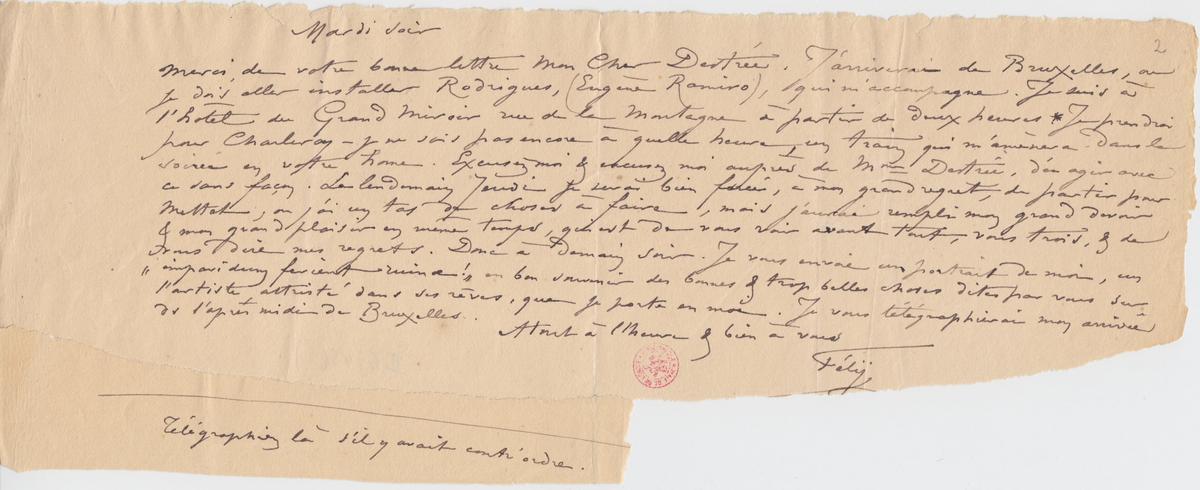 Mardi soir
2
Merci, de votre bonne lettre Mon Cher Destrée. J'arriverai de Bruxelles, où
je dois aller installer Rodrigues, (Eugène Ramiro), qui m'accompagne. Je suis à
l'hôtel du Grand Miroir rue de la Montagne à partir de deux heures * Je prendrai
pour Charleroy – je ne sais pas encore à quelle heure, un train qui m'amènera dans la
soirée en votre home. Excusez moi & excusez moi auprès de Mme Destrée, d'en agir avec
ce sans façon. Le lendemain Jeudi je serai bien forcé, à mon grand regret, de partir pour
Mettet, où j'ai un tas de choses à faire, mais j'aurai rempli mon grand devoir
& mon grand plaisir en même temps, qui est de vous voir avant tout, vous trois, & de
vous dire mes regrets. Donc à demain soir. Je vous envoie un portrait de moi, un
"impavidum ferient ruinæ!" en bon souvenir des bonnes & trop belles choses dites par vous sur
l'artiste attristé dans ses rêves, que je porte en moi. Je vous télégraphierai mon arrivée
dès l'après midi de Bruxelles.
A tout à l'heure & bien à vous
Fély
Télégraphiez là s'il y avait contr'ordre.